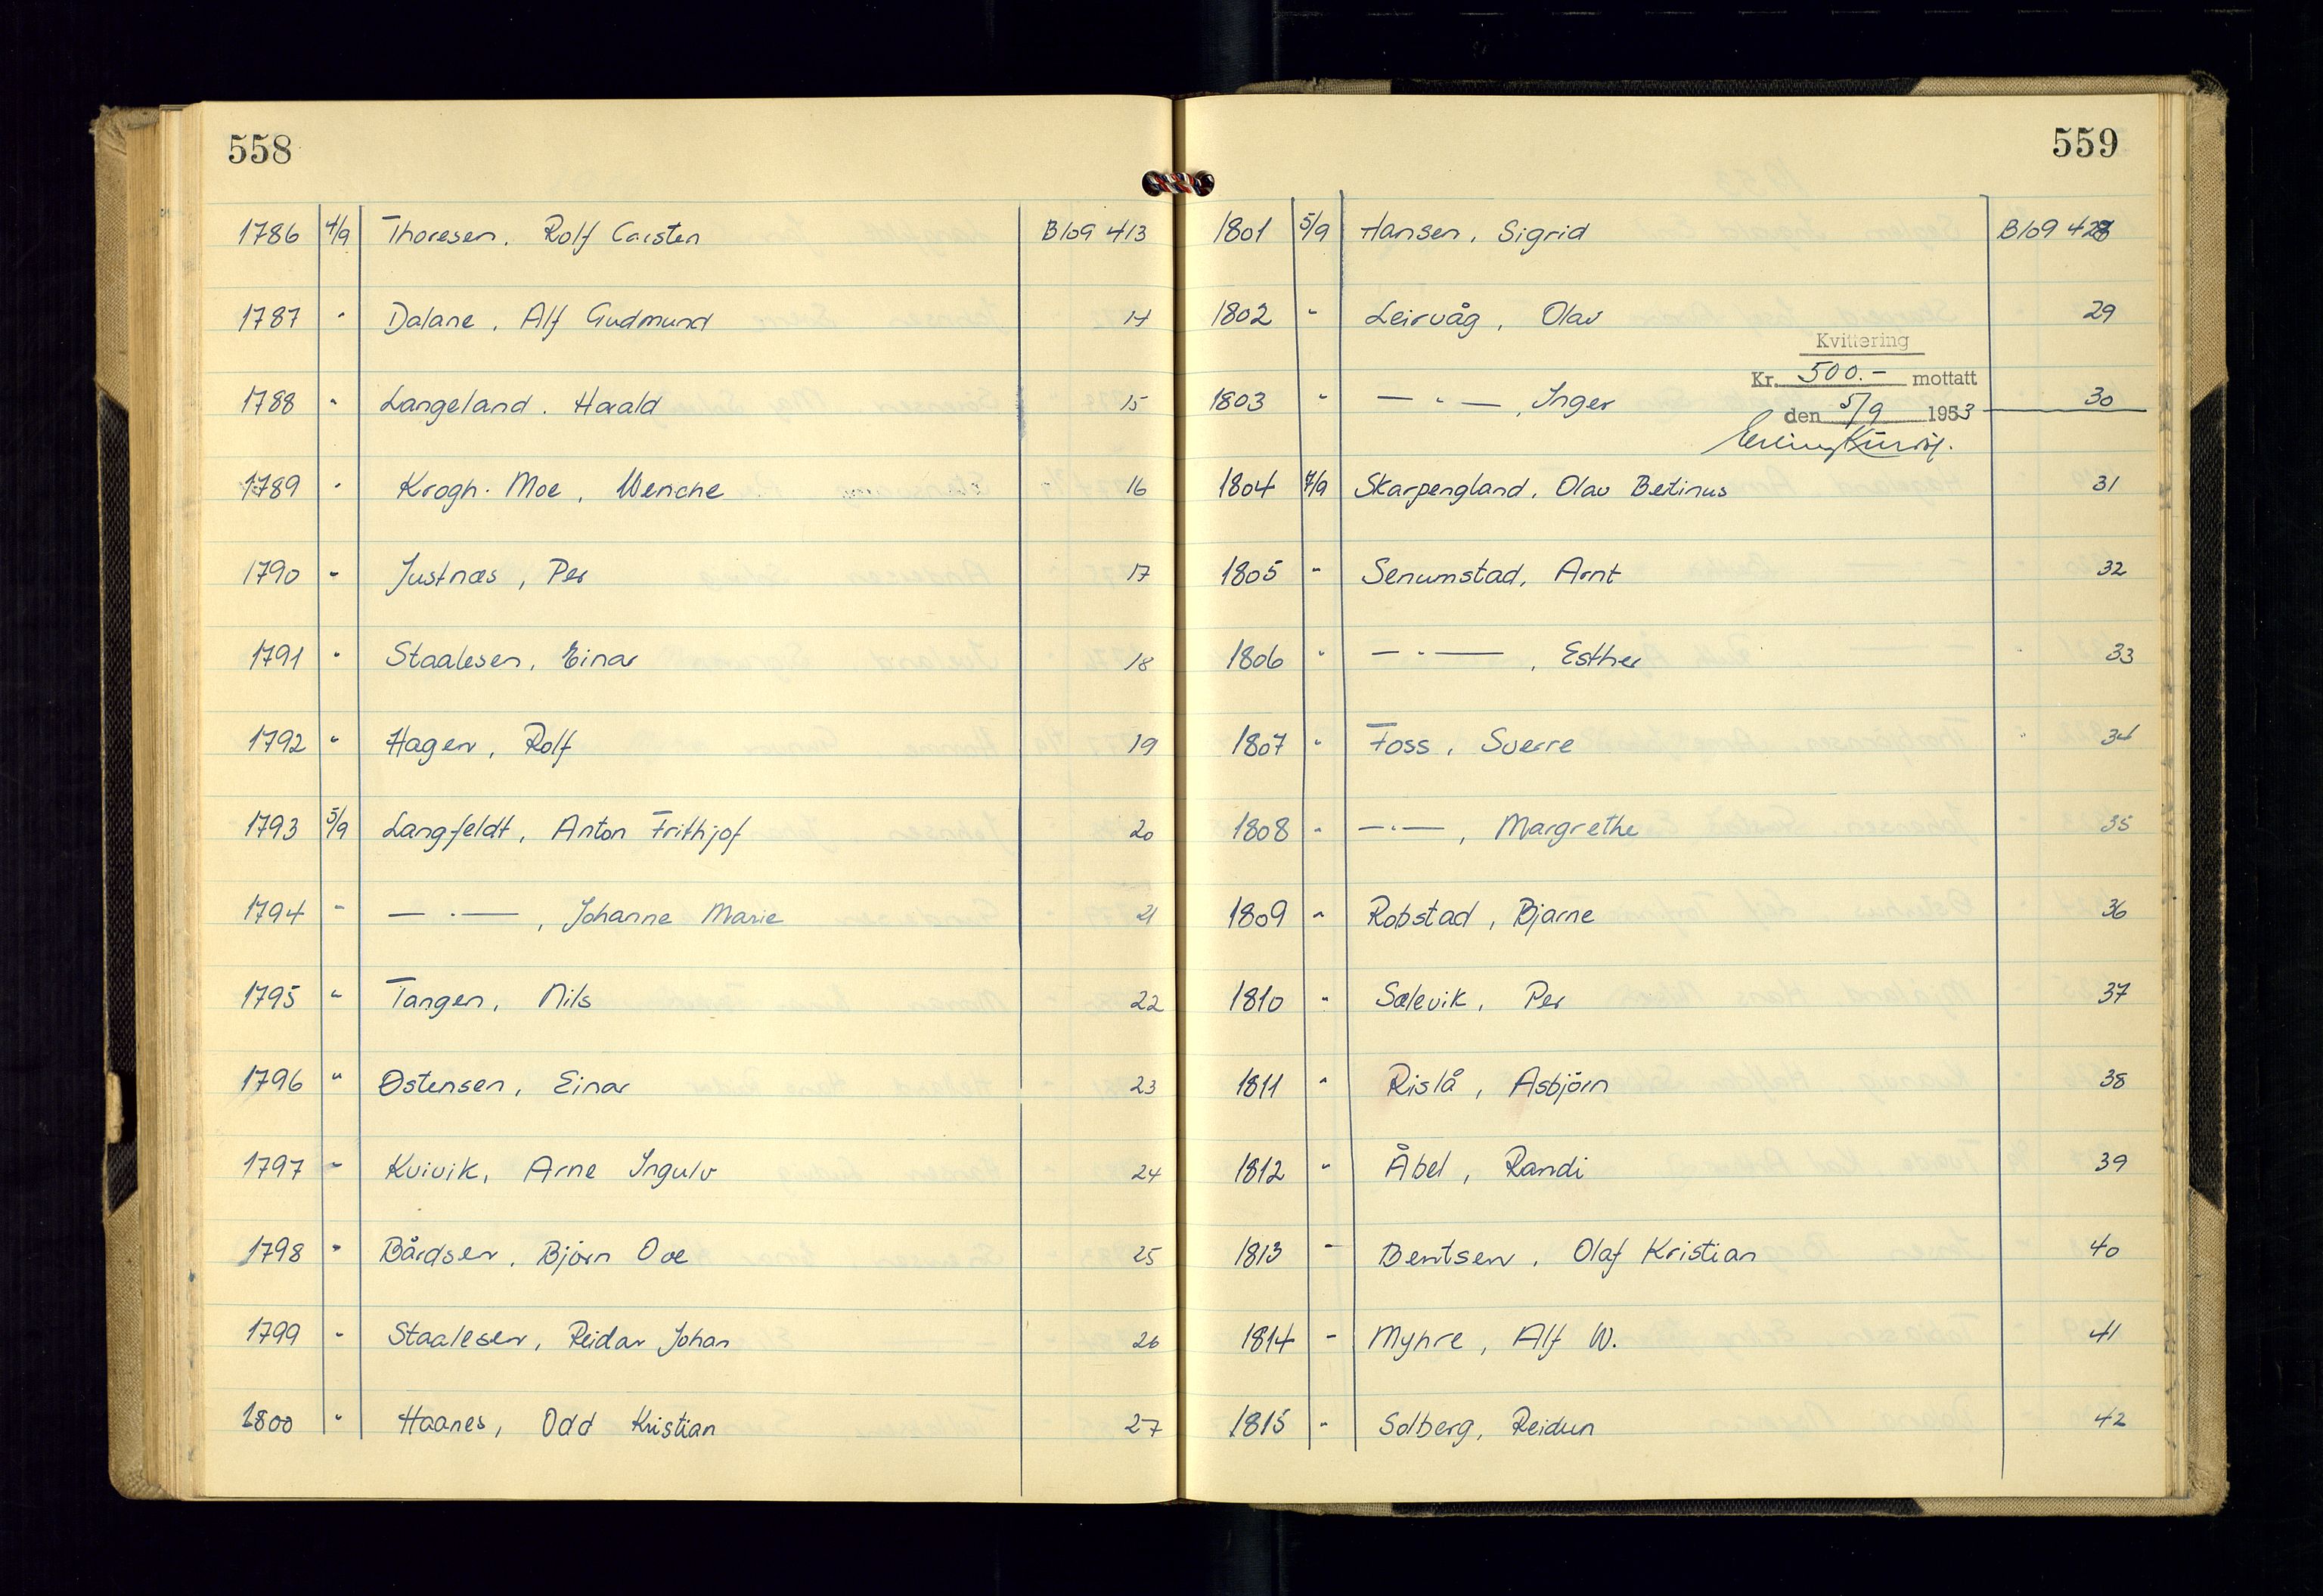 558
1786 4/9 Thoresen, Rolf Carsten B109 413
1787 " Dalane, Alf Gudmund 14
1788 " Langeland. Harald 15
1789 " Krogh-Moe, Wenche 16
1790 " Justnæs, Per 17
1791 " Staalesen, Einar 18
1792 " Hagen, Rolf 19
1793 5/9 Langfeldt, Anton Frithjof 20
1794 " — " —, Johanne Marie 21
1795 " Tangen, Nils 22
1796 " Østensen, Einar 23
1797 " Kvivik, Arne Ingulv 24
1798 " Bårdsen, Björn Ove 25
1799 " Staalesen, Reidar Johan 26
1800 " Haanes, Odd Kristian 27
559
1801 5/9 Hansen, Sigrid B109 428
1802 " Leirvåg, Olav 29
Kvittering
Kr. 500.- mottatt
1803 " — " —, Inger 30
den 5/9 1953
1804 7/9 Skarpengland, Olav Bertinus 31
1805 " Senumstad, Arnt 32
1806 " — " —, Esther 33
1807 " Foss, Sverre 34
1808 " — " —, Margrethe 35
1809 " Robstad, Bjarne 36
1810 " Sælevik, Per 37
1811 " Rislå, Asbjörn 38
1812 " Åbel, Randi 39
1813 " Bentsen, Olaf Kristian 40
1814 " Myhre, Alf W. 41
1815 " Solberg, Reidun 42